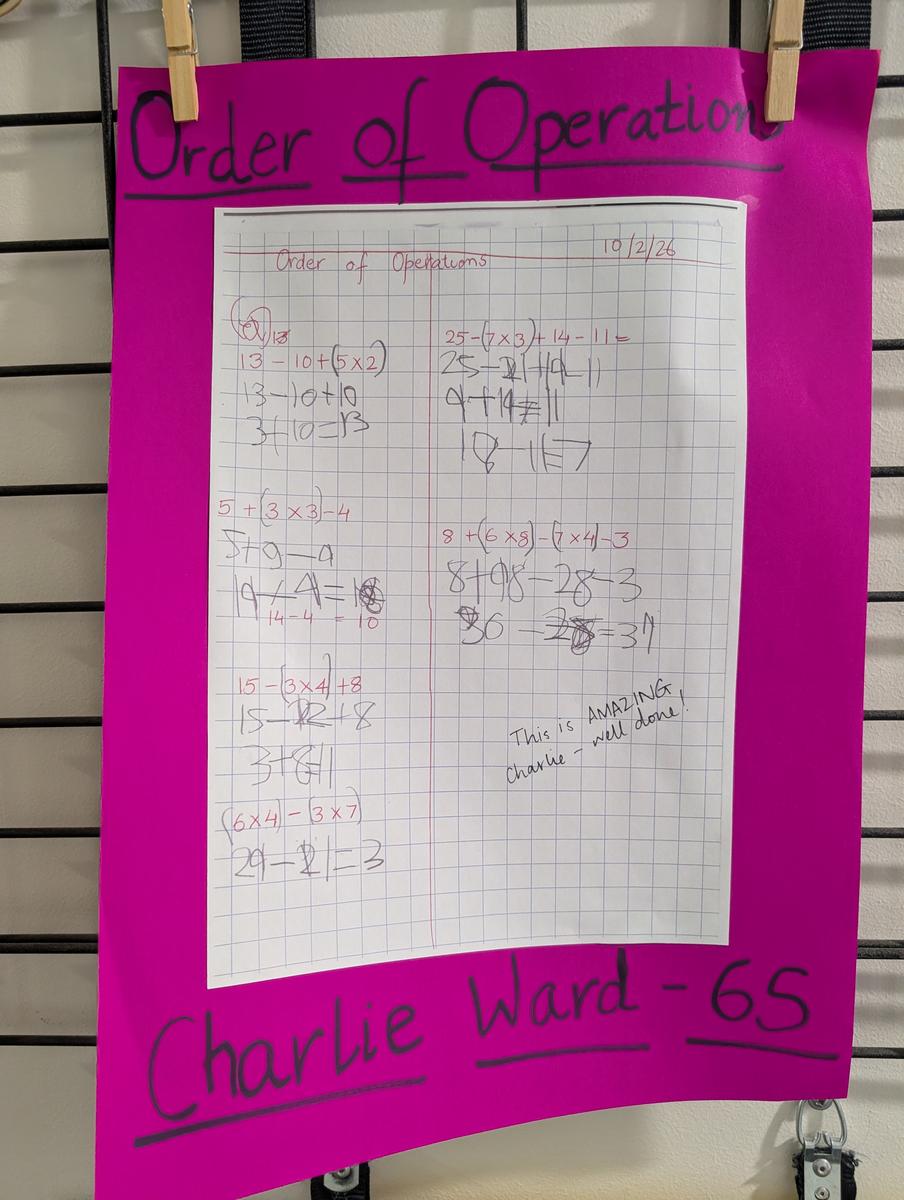 Order of Operations
Order of Operations 10/2/26
13 - 10 + (5 x 2)
13 - 10 + 10
3 + 10 = 13
5 + (3 x 3) - 4
5 + 9 - 4
14 - 4 =
14 - 4 = 10
15 - (3 x 4) + 8
15 - 12 + 8
3 + 8 = 11
(6 x 4) - (3 x 7)
24 - 21 = 3
25 - (7 x 3) + 14 - 11 =
25 - 21 + 14 - 11
4 + 14 = 11
18 - 11 = 7
8 + (6 x 8) - (7 x 4) - 3
8 + 48 - 28 - 3
This is AMAZING
Charlie - well done!
Charlie Ward - 6S